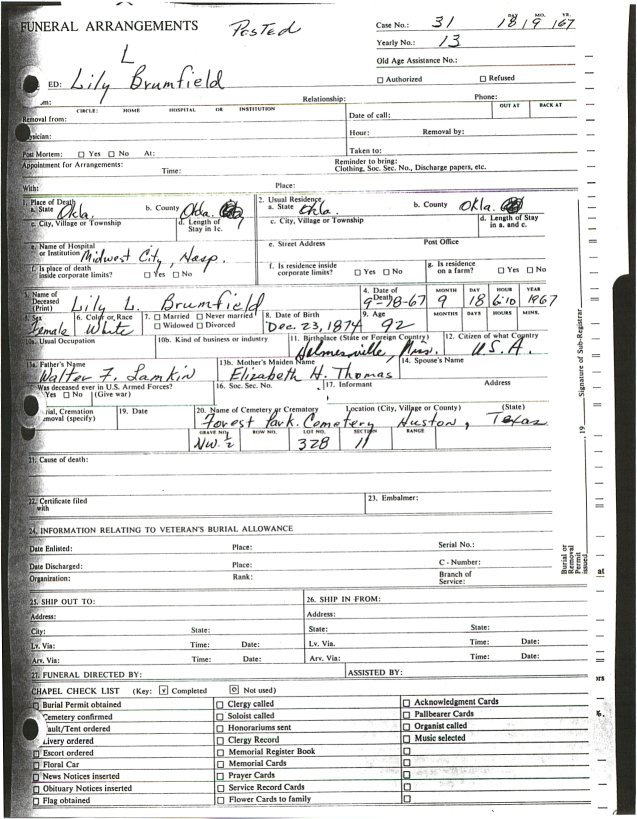 FUNERAL ARRANGEMENTS Posted Case No.: 31 DAY MO. YR. 18 9 67
Yearly No.: 13
Old Age Assistance No.:
☐ Authorized ☐ Refused
L
ED: Lily Brumfield
Relationship: Phone:
CIRCLE: HOME HOSPITAL OR INSTITUTION OUT AT BACK AT
Removal from: Date of call:
Hour: Removal by:
Post Mortem: ☐ Yes ☐ No At: Taken to:
Appointment for Arrangements: Reminder to bring:
Time: Clothing, Soc. Sec. No., Discharge papers, etc.
With: Place:
1. Place of Death 2. Usual Residence
a. State Okla. b. County Okla. a. State Okla. b. County Okla.
c. City, Village or Township d. Length of Stay in 1c. c. City, Village or Township d. Length of Stay in a. and c.
e. Name of Hospital or Institution Midwest City, Hosp. e. Street Address Post Office
f. Is place of death inside corporate limits? ☐ Yes ☐ No f. Is residence inside corporate limits? ☐ Yes ☐ No g. Is residence on a farm? ☐ Yes ☐ No
3. Name of Deceased (Print) Lily L. Brumfield 4. Date of Death 9-18-67 MONTH 9 DAY 18 HOUR 6:10 YEAR 1967
5. Sex Female 6. Color or Race White 7. ☐ Married ☐ Never married ☐ Widowed ☐ Divorced 8. Date of Birth Dec. 23, 1874 9. Age 92 MONTHS DAYS HOURS MINS.
10a. Usual Occupation 10b. Kind of business or industry 11. Birthplace (State or Foreign Country) Holmesville, Miss. 12. Citizen of what Country U.S.A.
13a. Father's Name Walter F. Lamkin 13b. Mother's Maiden Name Elizabeth H. Thomas 14. Spouse's Name
Was deceased ever in U.S. Armed Forces? 16. Soc. Sec. No. 17. Informant Address
Yes ☐ No (Give war)
Cremation (specify) 19. Date 20. Name of Cemetery or Crematory Forest Park. Cemetery Location (City, Village or County) Huston, (State) Texas
GRAVE NO. NW ½ ROW NO. LOT NO. 328 SECTION 11 RANGE
21. Cause of death:
22. Certificate filed with 23. Embalmer:
24. INFORMATION RELATING TO VETERAN'S BURIAL ALLOWANCE
Date Enlisted: Place: Serial No.:
Date Discharged: Place: C - Number:
Organization: Rank: Branch of Service:
25. SHIP OUT TO: 26. SHIP IN FROM:
Address: Address:
City: State: State: State:
Lv. Via. Time: Date: Lv. Via. Time: Date:
Arv. Via: Time: Date: Arv. Via. Time: Date:
27. FUNERAL DIRECTED BY: ASSISTED BY:
CHAPEL CHECK LIST (Key: ☑ Completed ☐ Not used)
☐ Burial Permit obtained ☐ Clergy called ☐ Acknowledgment Cards
Cemetery confirmed ☐ Soloist called ☐ Pallbearer Cards
Vault/Tent ordered ☐ Honorariums sent ☐ Organist called
Livery ordered ☐ Clergy Record ☐ Music selected
☐ Escort ordered ☐ Memorial Register Book ☐
☐ Floral Car ☐ Memorial Cards ☐
☐ News Notices inserted ☐ Prayer Cards ☐
☐ Obituary Notices inserted ☐ Service Record Cards ☐
☐ Flag obtained ☐ Flower Cards to family ☐
Signature of Sub-Registrar
, 19
Burial or Removal Permit issued
at